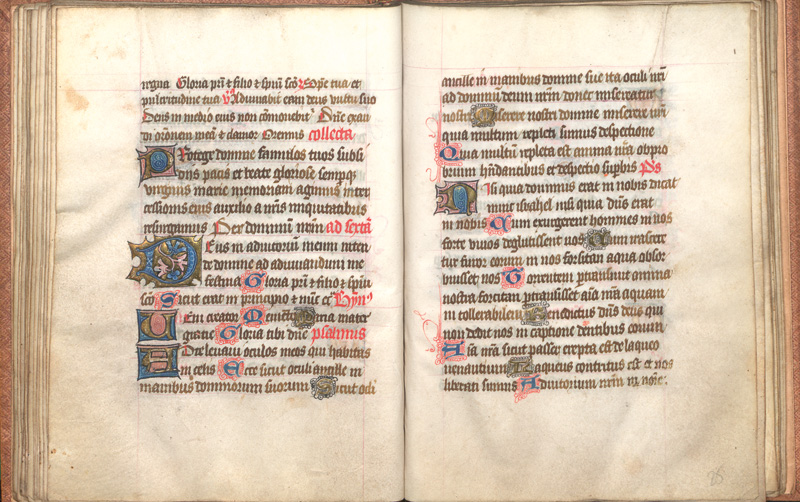 regna Gloria pri & filio & spui sco Spe tua et
pulcritudine tua Adiuuabit eam deus uultu suo
Deus in medio eius non comouebit Dne exau
di oronem mea & clamor Oremus collecta
Protege domine famulos tuos subsi
diis pacis et beate gloriose semperq
uirginis marie memoriam agimus inter
cessionis eius auxilio a nris iniquitatibus
resurgamus Per dominum nrm ad sexta
Deus in adiutorium meum inten
de domine ad adiuuandum me
festina Gloria pri & filio & spui
sco Sicut erat in principio & nunc et Hyn
Ueni creator Mento Maria mater
gratie Gloria tibi dne psalmus
Ad te leuaui oculos meos qui habitas
in celis Ecce sicut oculi ancille in
manibus dominorum suorum Sicut oculi
ancille in manibus domine sue ita oculi nri
ad dominu deum nrm donec misereatur
nostri Miserere nostri domine miserere nri
quia multum repleti sumus despectione
Quia multu repleta est anima nra obpro
brium habundantibus et despectio supbis Ps
Nisi quia dominus erat in nobis dicat
nunc israhel nisi quia dns erat
in nobis Cum exurgerent homines in nos
forte uiuos deglutissent nos Cum irascere
tur furor eorum in nos forsitan aqua absor
buisset nos Torrentem ptransiuit anima
nostra forsitan ptransisset aia nra aquam
in tollerabilem Benedictus dns deus qui
non dedit nos in captione dentibus eorum
Aia nra sicut passer erepta est de laqueo
uenantium Laqueus contritus est et nos
liberati sumus Adiutorium nrm in noie